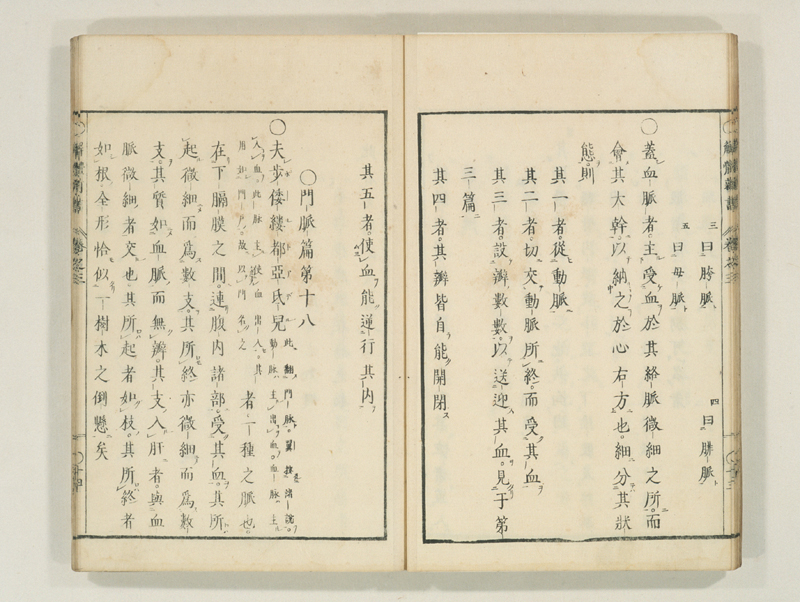 三曰胯脈 四曰腓脈
五曰毋脈
〇蓋血脈者主受血於其絡脈微細之所而
會其大幹以納之於心右方也細分其狀
態則
其一者從動脈
其二者切交動脈所終而受其血
其三者設辨數數以送迎其血見于第
三篇
其四者其辨皆自能開閉
其五者使血能逆行其内
〇門脈篇第十八
〇夫步倭縷都亞氐兒此翻門脈
者一種之脈也
在下膈膜之間連腹内諸部受其血其所
起微細而爲數支其所終亦微細而爲數
支其質如血脈而無辨其支入肝者與血
脈微細者交也其所起者如枝其所終者
如根全形恰似一樹木之倒懸矣